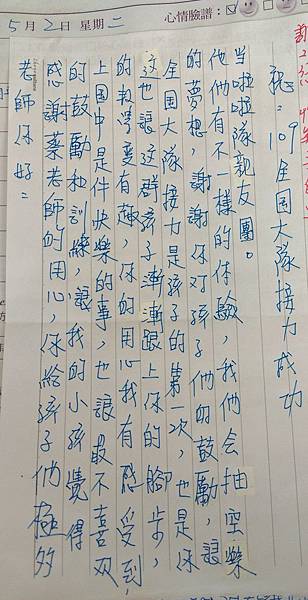 5月2日 星期二 心情臉譜：
老師你好：
感謝蔡老師的用心，你給孩子們極多
的鼓勵和訓練，讓我的小孩覺得
上国中是件快樂的事，也讓最不喜欢
的教學变有趣，你的用心我有感受到，
这也讓这群孩子漸漸跟上你的腳步，
全国大隊接力是孩子的第一次，也是你
的夢想，謝謝你对孩子他們的鼓勵，讓
他們有不一樣的体驗，我們会抽空樂
當啦啦隊親友團。
祝：109全国大隊接力成功